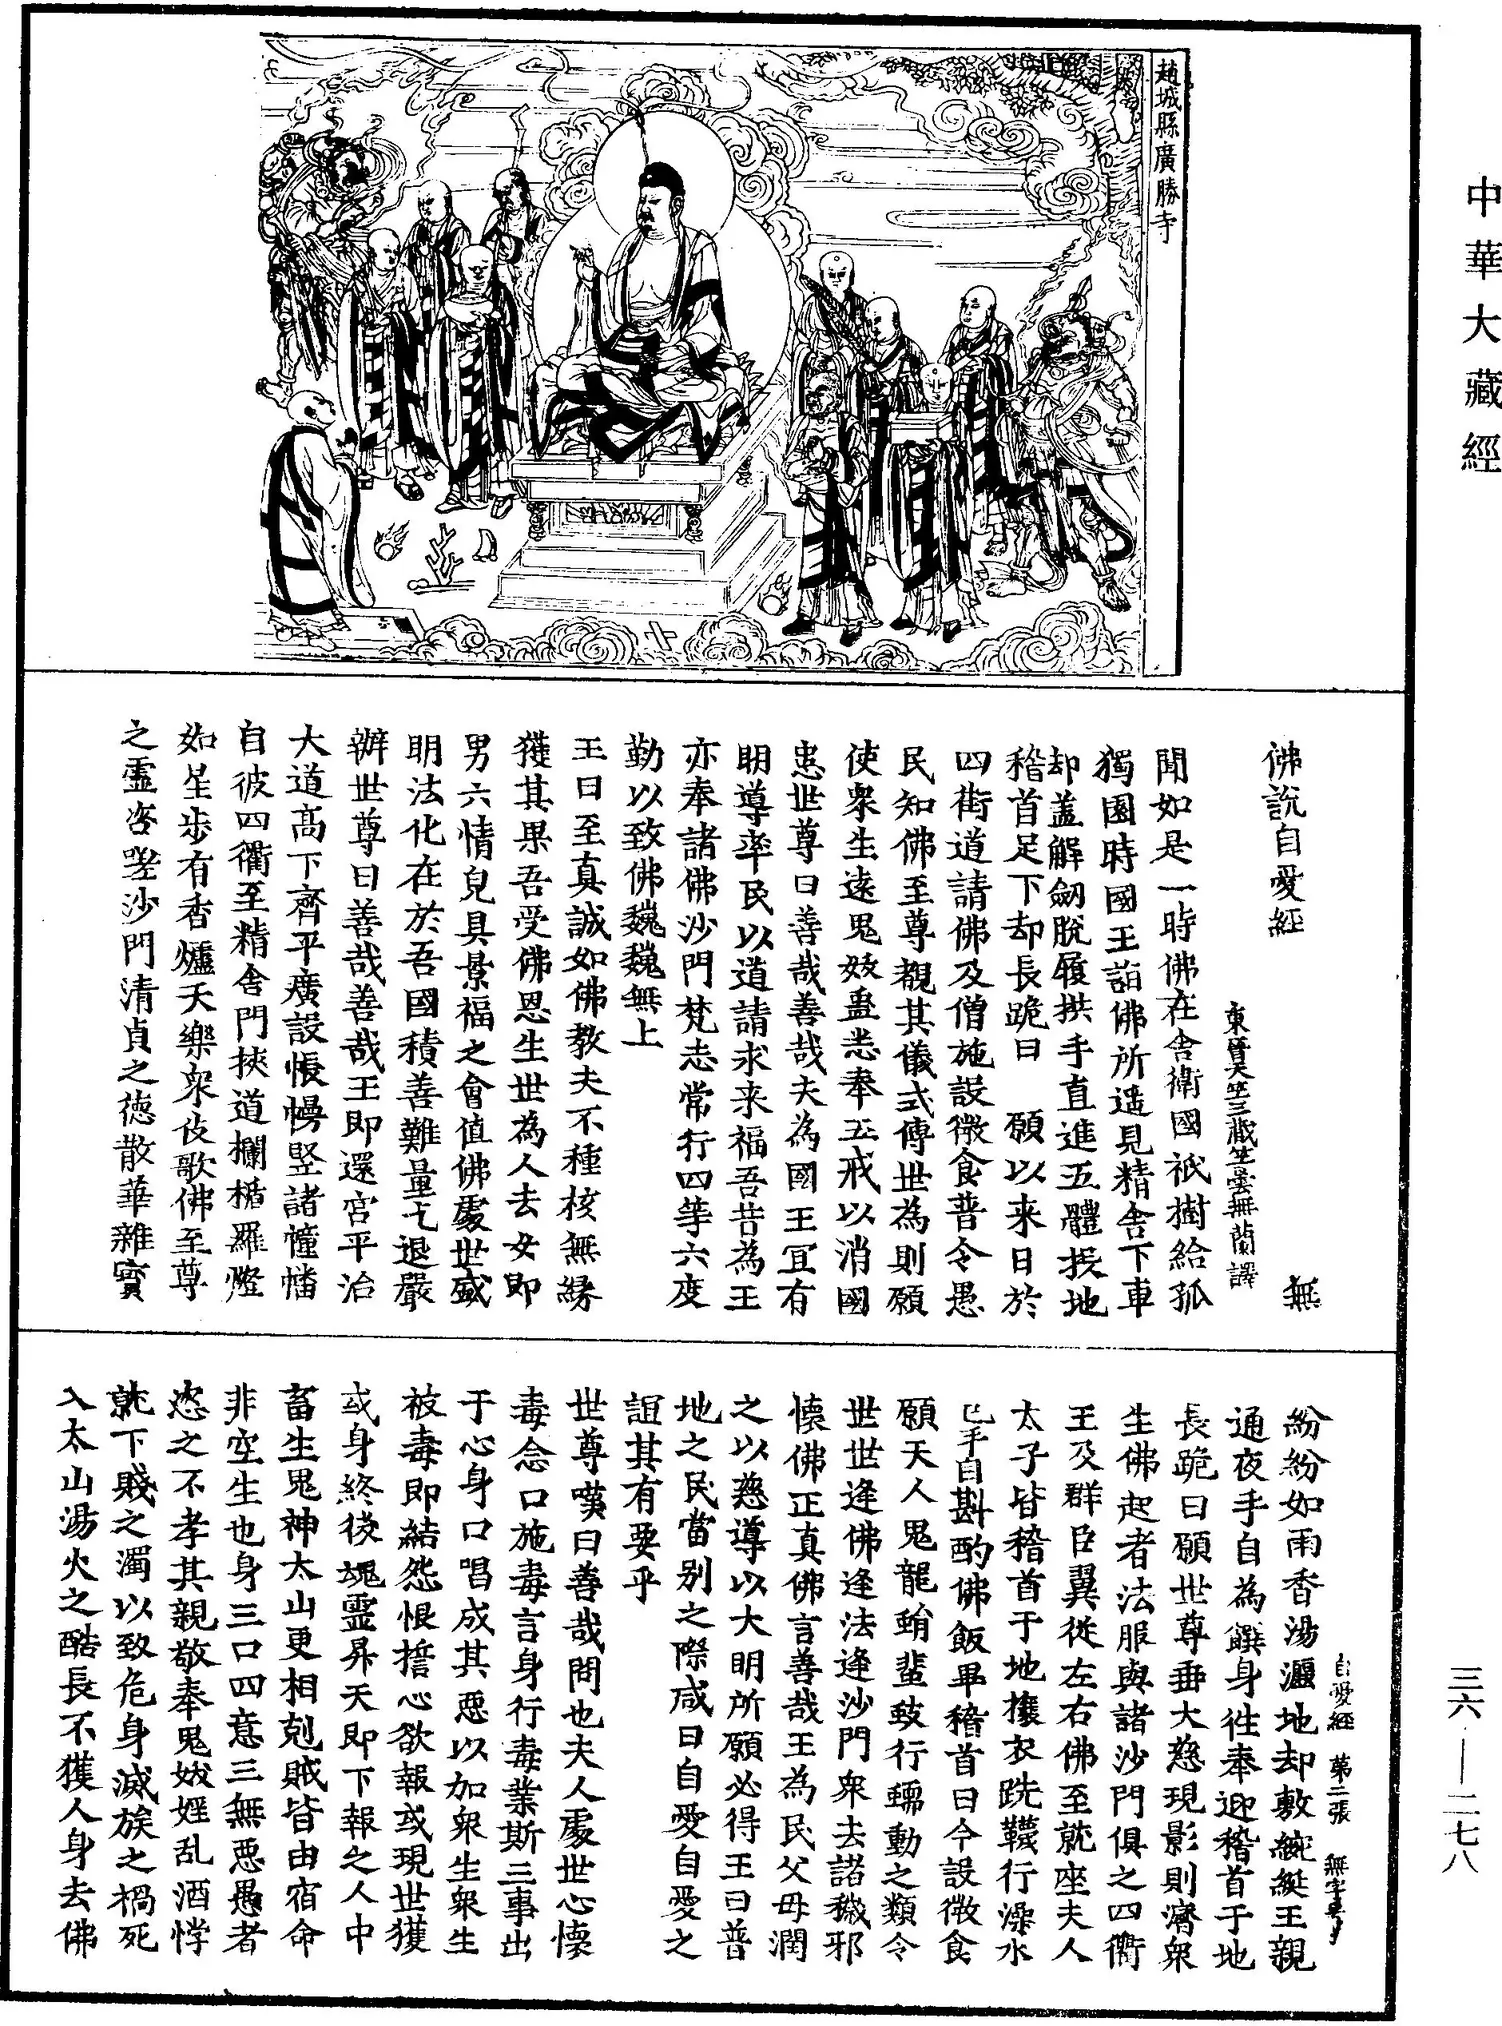 中華大藏經
三六—二七八
趙城縣廣勝寺
佛說自愛經　無
東晉天竺三藏竺曇無蘭譯
聞如是一時佛在舍衛國祇樹給孤
獨園時國王詣佛所遥見精舍下車
却盖解劒脫履拱手直進五體投地
稽首足下却長跪曰　願以来日於
四街道請佛及僧施設微食普令愚
民知佛至尊覩其儀式傳世為則願
使衆生遠鬼妓蠱悉奉五戒以消國
患世尊曰善哉善哉夫為國王宜有
明導率民以道請求来福吾昔為王
亦奉諸佛沙門梵志常行四等六度
勤以致佛巍巍無上
王曰至真誠如佛教夫不種核無緣
獲其果吾受佛恩生世為人去女即
男六情皃具景福之會值佛處世盛
明法化在於吾國積善難量乞退嚴
辦世尊曰善哉善哉王即還宮平治
大道髙下齊平廣設帳幔竪諸幢幡
自彼四衢至精舍門挾道欄楯羅燈
如星步有香爐天樂衆伎歌佛至尊
之靈咨嗟沙門清貞之德散華雜寳
自愛經　第二張　無字号
紛紛如雨香湯灑地却敷綩綖王親
通夜手自為饌身徃奉迎稽首于地
長跪曰願世尊垂大慈現影則濟衆
生佛起者法服與諸沙門俱之四衢
王及群臣翼從左右佛至就座夫人
太子皆稽首于地攘衣跣韈行澡水
已手自斟酌佛飯畢稽首曰今設微食
願天人鬼龍蛕蜚蚑行蠕動之類令
世世逢佛逢法逢沙門衆去諸穢邪
懷佛正真佛言善哉王為民父母潤
之以慈導以大明所願必得王曰普
地之民當别之際咸曰自愛自愛之
誼其有要乎
世尊嘆曰善哉問也夫人處世心懷
毒念口施毒言身行毒業斯三事出
于心身口唱成其惡以加衆生衆生
被毒即結怨恨誓心欲報或現世獲
或身終後魂靈昇天即下報之人中
畜生鬼神太山更相剋賊皆由宿命
非空生也身三口四意三無惡愚者
恣之不孝其親敬奉鬼妓婬乱酒悖
就下賤之濁以致危身滅族之禍死
入太山湯火之酷長不獲人身去佛